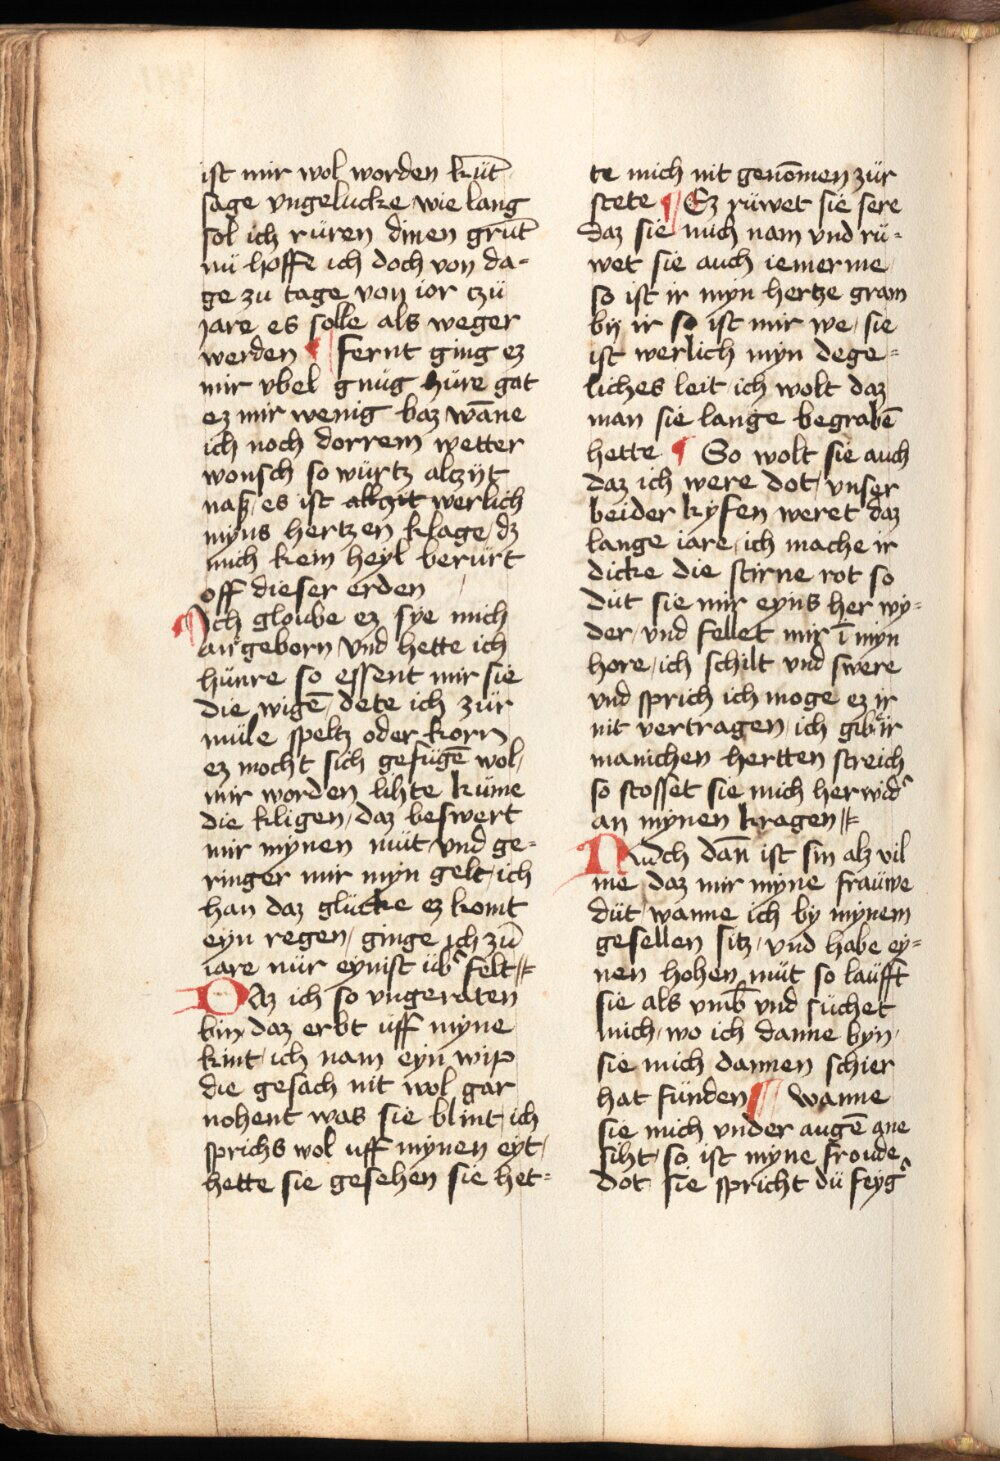 ist mir wol worden kūt
sage vngelucke wie lang
sol ich rüren dinen grūt
nü hoffe ich doch von da-
ge zu tage von ior czü
jare es solle als weger
werden ¶ fernt ging ez
mir vbel gnüg hüre gat
ez mir wenig baz wāne
ich noch dorrem wetter
wonsch so würtz alczÿt
naß, es ist alczit werlich
mÿns hertzen klage, dz
mich kein heÿl berürt
off dieser erden
Ich gloube ez sÿe mich
an geborn, vnd hette ich
hünre so essent mir sie
die wigē, dete ich zür
müle speltz oder korn
ez mocht sich gefügē wol,
mir worden lihte küme
die kligen, daz beswert
mir mÿnen müt, vnd ge-
ringer mir mÿn gelt, ich
han daz glücke ez komt
eÿn regen, ginge ich zü
iare nür eÿnist üb' felt
Daz ich so vngeraten
bin daz erbt uff mÿne
kint, ich nam eÿn wip
die gesach nit wol gar
nohent was sie blint, ich
sprichs wol uff mÿnen eÿt,
hette sie gesehen sie het-
te mich nit genōmen zür
stete ¶ Ez rüwet sie sere
daz sie mich nam vnd rü-
wet sie auch iemerme
so ist ir mÿn hertze gram
bÿ ir so ist mir we, sie
ist werlich mÿn dege-
liches leit, ich wolt daz
man sie lange begrabē
hette ¶ So wolt sie auch
daz ich were dot, vnser
beider kÿfen weret daz
lange iare, ich mache ir
dicke die stirne rot so
düt sie mir eÿns her wÿ-
der, vnd fellet mir ī mÿn
hore, ich schilt vnd swere
vnd sprich ich moge ez ir
nit vertragen, ich gib ir
manichen hertten streich
so stosset sie mich herwid'
an mÿnen kragen
Nach dān ist sin alz vil
me daz mir mÿne fraüwe
düt, wanne ich bÿ mÿnem
gesellen sitz, vnd habe eÿ-
nen hohen müt so laüfft
sie als vmb vnd süchet
mich, wo ich danne bÿn,
sie mich dannen schier
hat fünden ¶ wanne
sie mich vnder augē ane
siht, so ist mÿne froude
dot sie spricht dü feÿg'